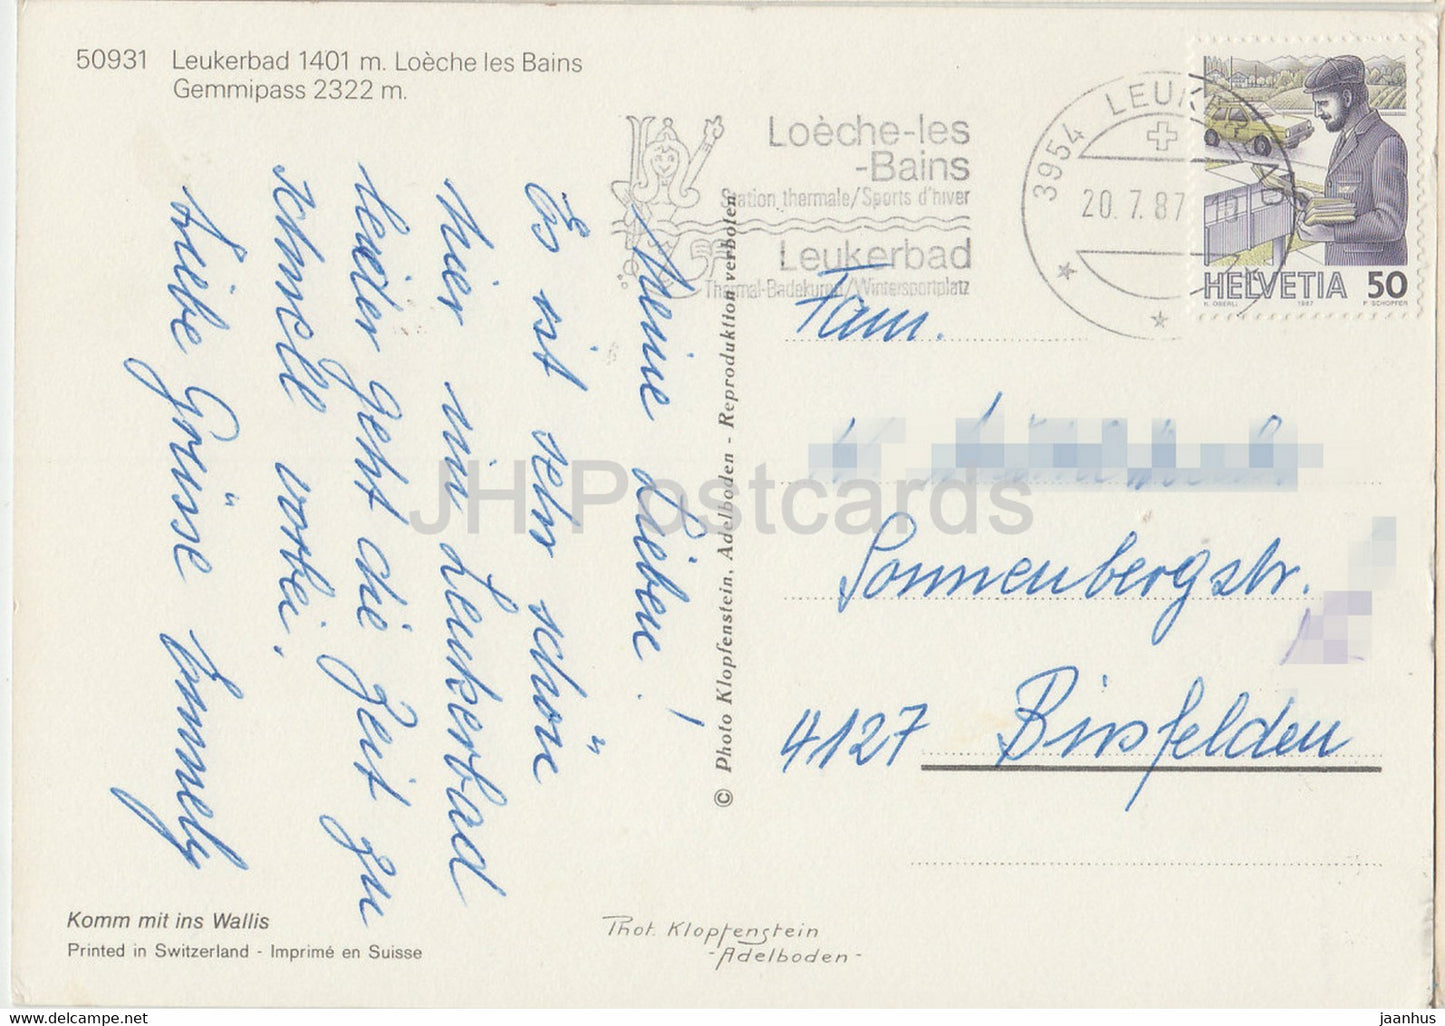 50931 Leukerbad 1401 m. Loèche les Bains
Gemmipass 2322 m.
Loèche-les
-Bains
Station thermale/Sports d'hiver
Leukerbad
Thermal-Badekurort/Wintersportplatz
3954 LEUKERBAD
20.7.87
HELVETIA 50
H. OBERLI 1987 P. SCHOPFER
Meine Lieben!
Es ist sehr schön
hier in Leukerbad
leider geht die Zeit zu
schnell vorbei.
Liebe Grüsse Emmely
© Photo Klopfenstein, Adelboden - Reproduktion verboten
Fam.
Sonnenbergstr.
4127 Birsfelden
JH Postcards
Komm mit ins Wallis
Printed in Switzerland - Imprimé en Suisse
Phot. Klopfenstein
-Adelboden-
www.delcampe.net
jaanhus